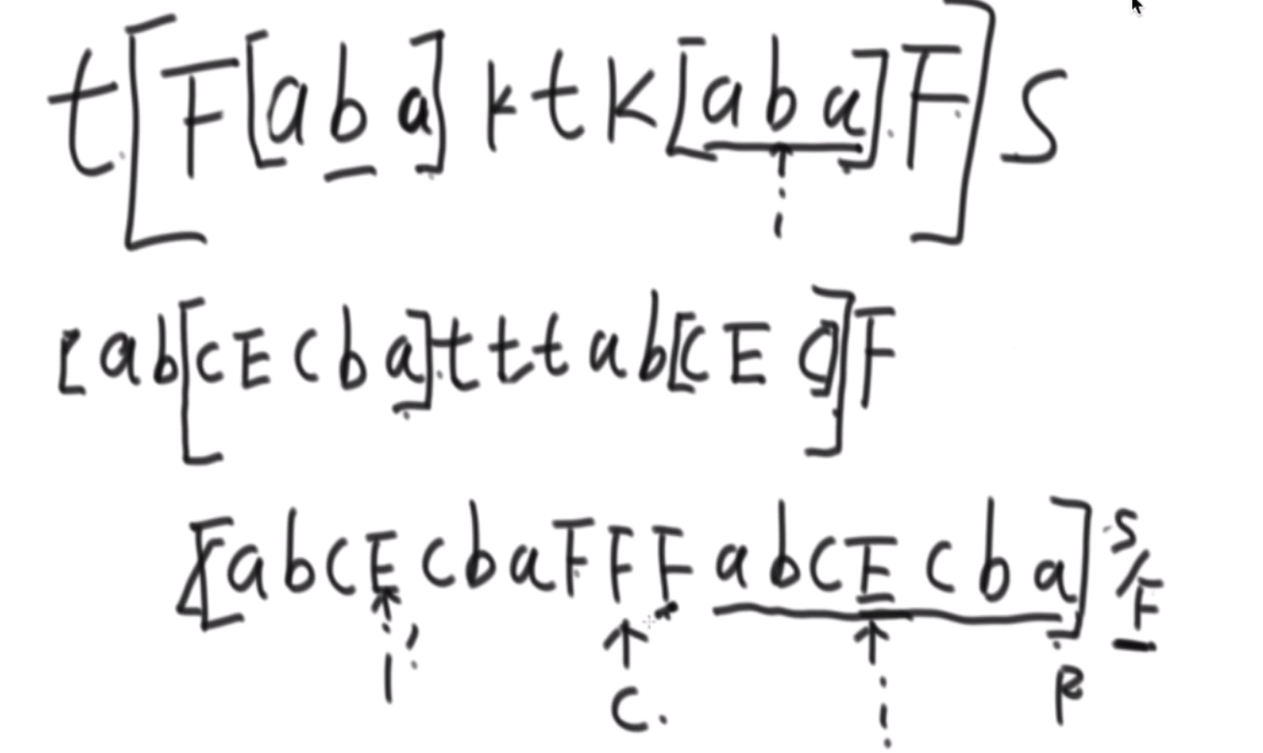 t[F[aba]ktk[aba]F]s
i
[ab[cEcba]tttab[cEc]]F
[abcEcbaFFFabcEcba]s/F
i'
i
C
R